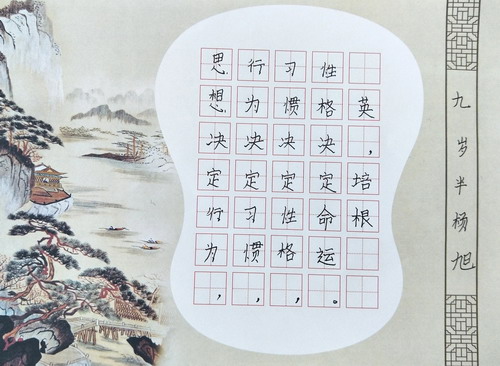 思想决定行为，
行为决定习惯，
习惯决定性格，
性格决定命运。
英，培根
九岁半杨旭